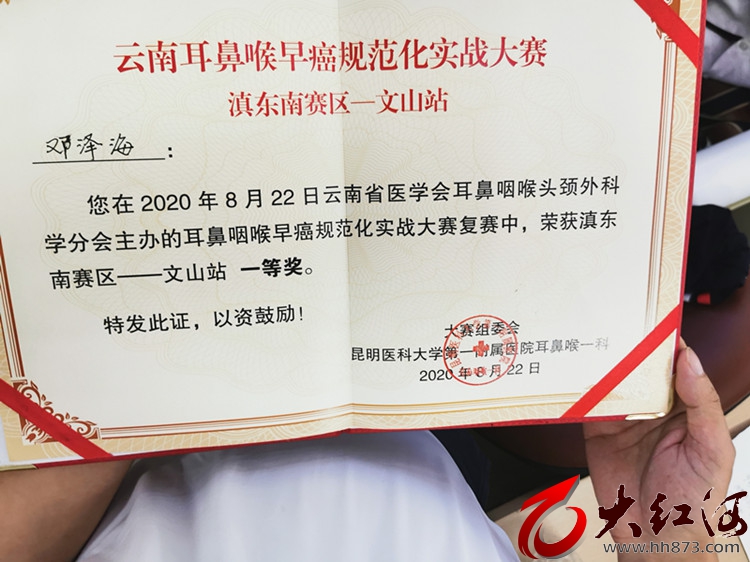 云南耳鼻喉早癌规范化实战大赛
滇东南赛区—文山站
邓泽海：
您在 2020 年 8 月 22 日云南省医学会耳鼻咽喉头颈外科
学分会主办的耳鼻咽喉早癌规范化实战大赛复赛中，荣获滇东
南赛区——文山站 一等奖。
特发此证，以资鼓励！
大赛组委会
昆明医科大学第一附属医院耳鼻喉一科
2020 年 8 月 22 日
大红河
www.hh873.com